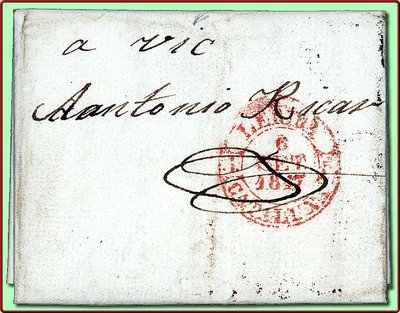 a vic
Aantonio Ricar
LERIDA
6
SET
1847
CATALUÑA